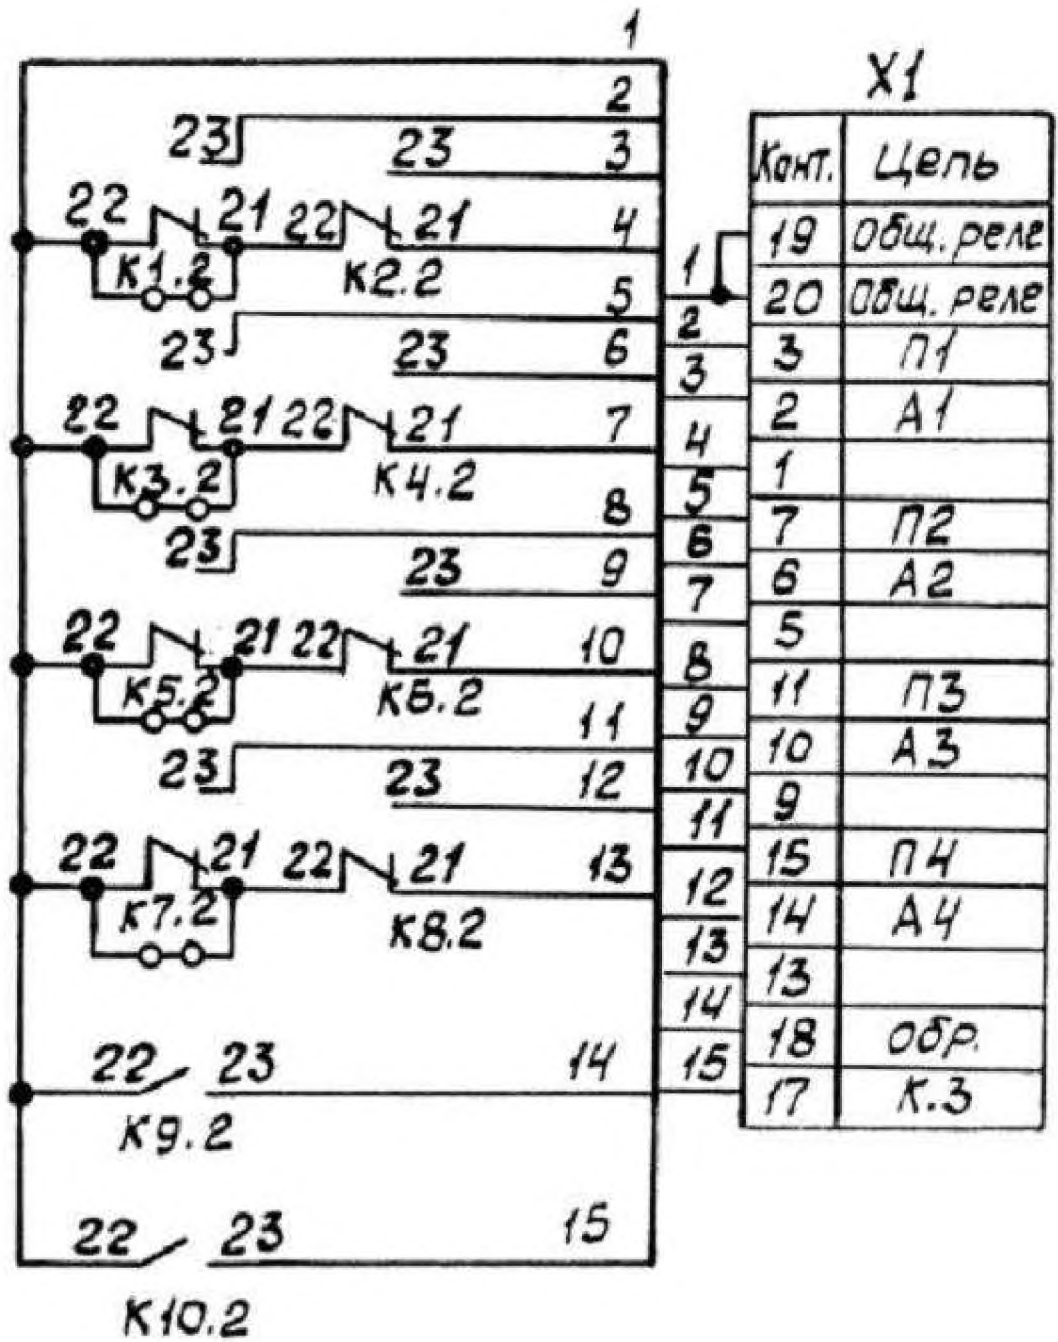 1
2
23
23 3
22 21 22 21 4
К1.2 К2.2
5
23 23 6
22 21 22 21 7
К3.2 К4.2
8
23 23 9
22 21 22 21 10
К5.2 К6.2
11
23 23 12
22 21 22 21 13
К7.2 К8.2
22 23 14
К9.2
22 23 15
К10.2
1
2
3
4
5
6
7
8
9
10
11
12
13
14
15
X1
Конт. Цепь
19 Общ. реле
20 Общ. реле
3 П1
2 А1
1
7 П2
6 А2
5
11 П3
10 А3
9
15 П4
14 А4
13
18 Обр.
17 К.З